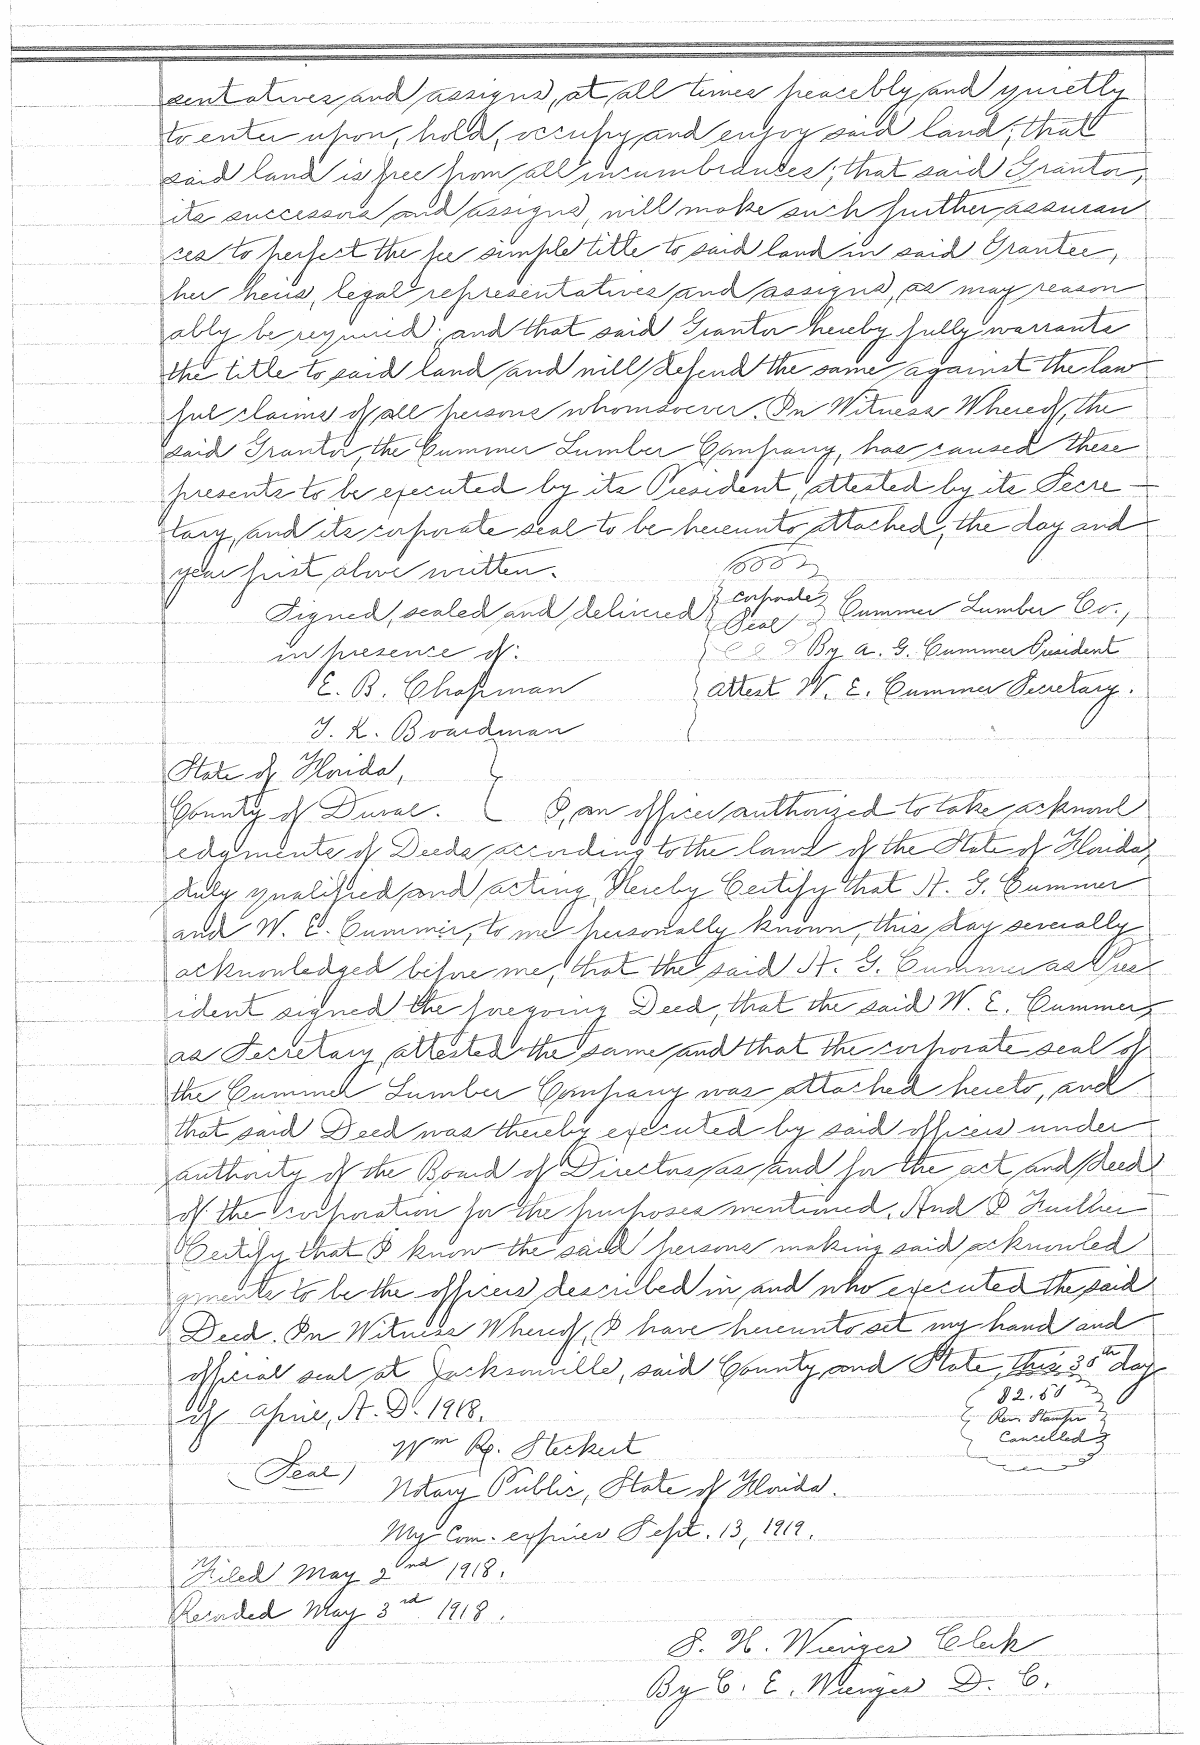 sentatives and assigns, at all times peacebly and quietly
to enter upon, hold, occupy and enjoy said land; that
said land is free from all incumbrances; that said Grantor,
its successors and assigns, will make such further assuran
ces to perfect the fee simple title to said land in said Grantee,
her heirs, legal representatives and assigns, as may reason
ably be required; and that said Grantor hereby fully warrants
the title to said land and will defend the same against the law
ful claims of all persons whomsoever. In Witness Whereof, the
said Grantor, the Cummer Lumber Company, has caused these
presents to be executed by its President, attested by its Secre-
tary, and its corporate seal to be hereunto attached, the day and
year first above written.
Signed, sealed and delivered Corporate Seal Cummer Lumber Co.,
in presence of: By A. G. Cummer President
E. B. Chapman attest W. E. Cummer Secretary.
T. K. Boardman
State of Florida,
County of Duval. I, an officer authorized to take acknowl
edgments of Deeds according to the laws of the State of Florida,
duly qualified and acting, Hereby Certify that A. G. Cummer
and W. E. Cummer, to me personally known, this day severally
acknowledged before me, that the said A. G. Cummer as Pres
ident signed the foregoing Deed, that the said W. E. Cummer,
as Secretary, attested the same and that the corporate seal of
the Cummer Lumber Company was attached hereto, and
that said Deed was thereby executed by said officers under
authority of the Board of Directors as and for the act and deed
of the corporation for the purposes mentioned. And I Further
Certify that I know the said persons making said acknowled
gments to be the officers described in and who executed the said
Deed. In Witness Whereof, I have hereunto set my hand and
official seal at Jacksonville, said County and State, this 30th day
of April, A. D. 1918.
$2.50
Rev. Stamps
Cancelled
Wm R. Steckert
(Seal) Notary Public, State of Florida.
My Com. expires Sept. 13, 1919.
Filed May 2nd 1918.
Recorded May 3rd 1918.
S. H. Wienges Clerk
By C. E. Wienges D. C.